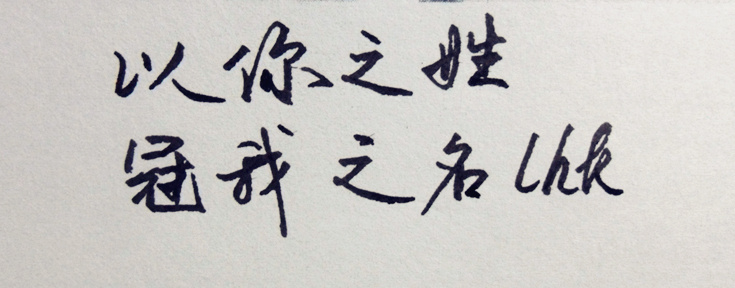 以你之姓
冠我之名lhk